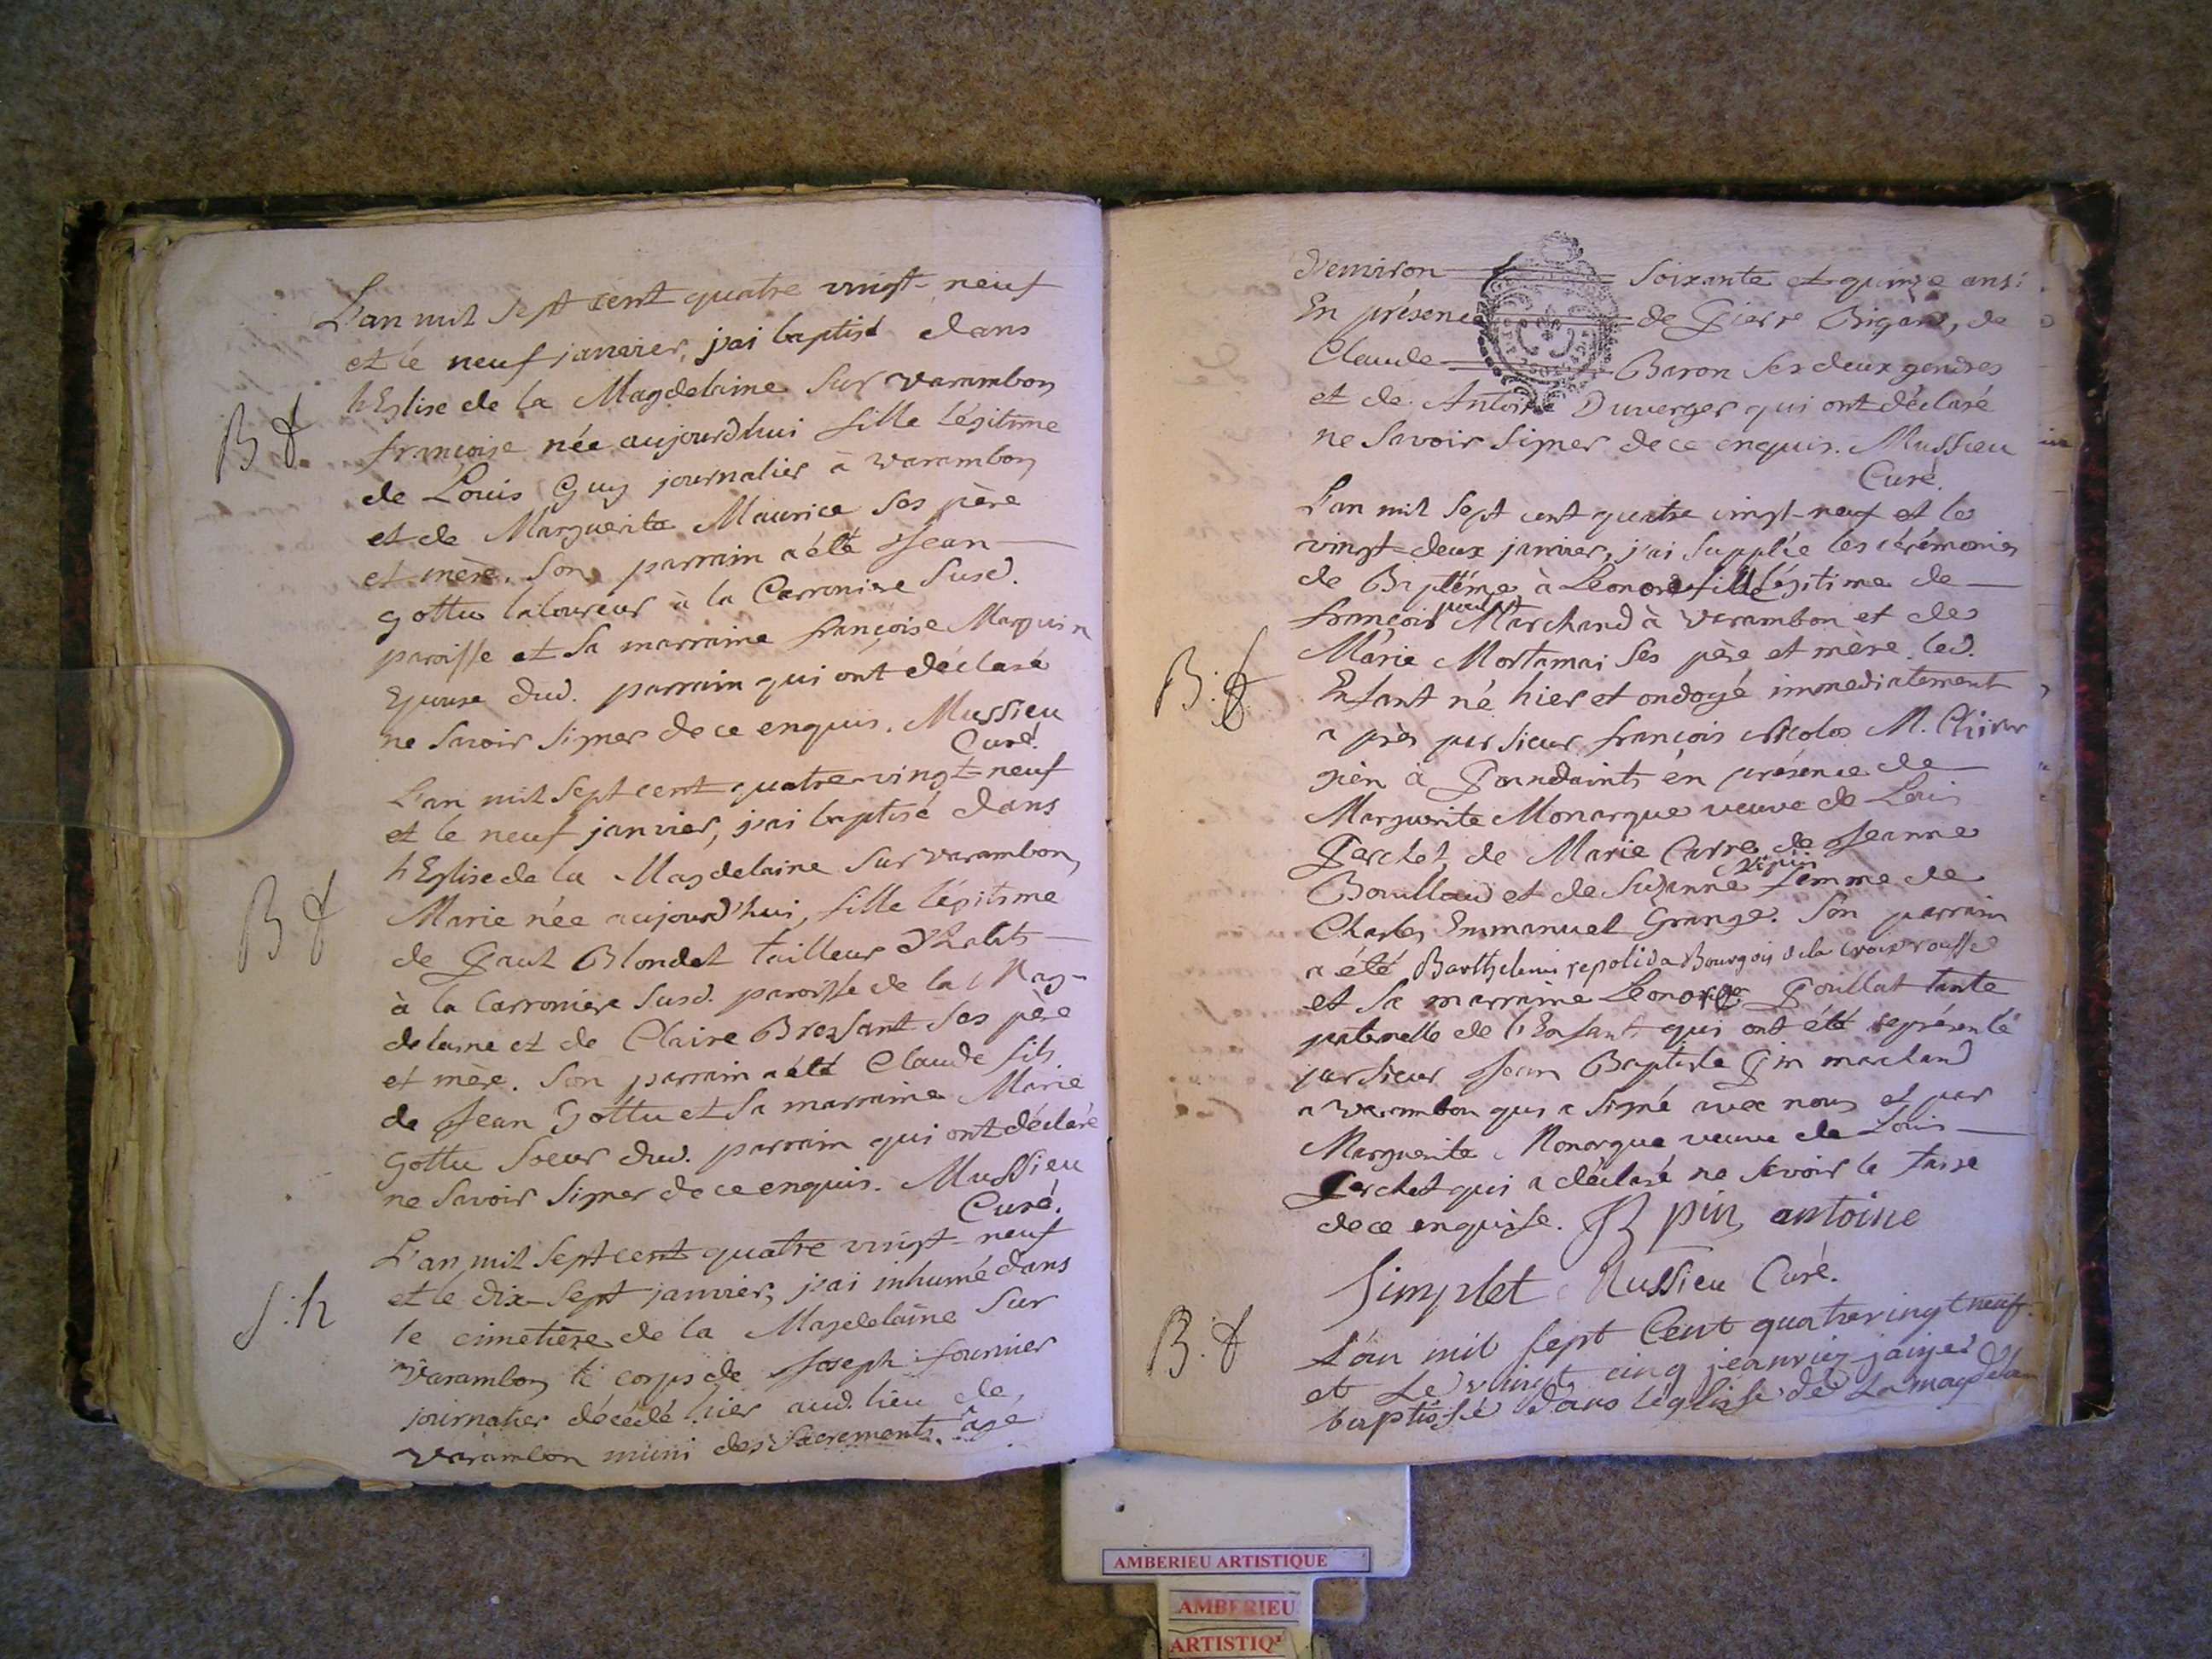 L'an mil sept cent quatre vingt-neuf
et le neuf janvier, j'ai baptisé dans
l'Eglise de la Magdelaine sur varambon
B f
françoise née aujourd'hui fille légitime
de Louis Guy journalier à varambon
et de Marguerite Maurice ses père
et mère. Son parrain a été Jean
gottu laboureur à la Carroniere susd.
paroisse et sa marraine françoise Marguin
Epouse dud. parrain qui ont déclaré
ne savoir signer de ce enquis. Mussieu
Curé.
L'an mil sept cent quatre-vingt-neuf
et le neuf janvier, j'ai baptisé dans
l'Eglise de la Magdelaine sur varambon,
B f
Marie née aujourd'hui, fille légitime
de Paul Blondet tailleur d'habits
à la Carroniere susd. paroisse de la Mag-
delaine et de Claire Bressant ses père
et mère. Son parrain a été Claude fils
de Jean Gottu et sa marraine Marie
gottu soeur dud. parrain qui ont déclaré
ne savoir signer de ce enquis. Mussieu
Curé.
L'an mil sept cent quatre vingt-neuf
et le dix-sept janvier, j'ai inhumé dans
S:h
le cimetière de la Magdelaine sur
varambon le corps de Joseph fournier
journalier décédé hier aud. lieu de
varambon muni des Sacrements, âgé
d'environ soixante et quinze ans:
En présence de Pierre Brigand, de
Claude Baron ses deux gendres
et de Antoine Duverger qui ont déclaré
ne savoir signer de ce enquis. Mussieu
Curé.
L'an mil sept cent quatre vingt-neuf et le
vingt-deux janvier, j'ai supplée les cérémonies
de Baptême à Léonore fille légitime de
françois Marchand à varambon et de
B:f
Marie Mortamai ses père et mère. led.
Enfant né hier et ondoyé immediatement
après par sieur françois Nicolas M. Chirur
gien à en présence de
Marguerite Monarque veuve de Louis
Perchet, de Marie Carre, de Jeanne
Bouillaud et de Suzanne femme de
Charles Emmanuel Grange. Son parrain
a été Barthelemi Bourgois de la Croix rousse
et sa marraine Léonore Poullat tante
paternelle de l'Enfant qui ont été représenté
par sieur Jean Baptiste Pin marchand
a varambon qui a signé avec nous et par
Marguerite Monarque veuve de Louis
Perchet qui a déclaré ne savoir le faire
de ce enquise. pin antoine
Simplet Mussieu Curé.
B:f
L'an mil sept Cent quatrevingt neuf
et le vingt cinq jeanvier jaiyes
baptissé dans léglisse de La magdelan
AMBERIEU ARTISTIQUE
AMBERIEU
ARTISTIQ